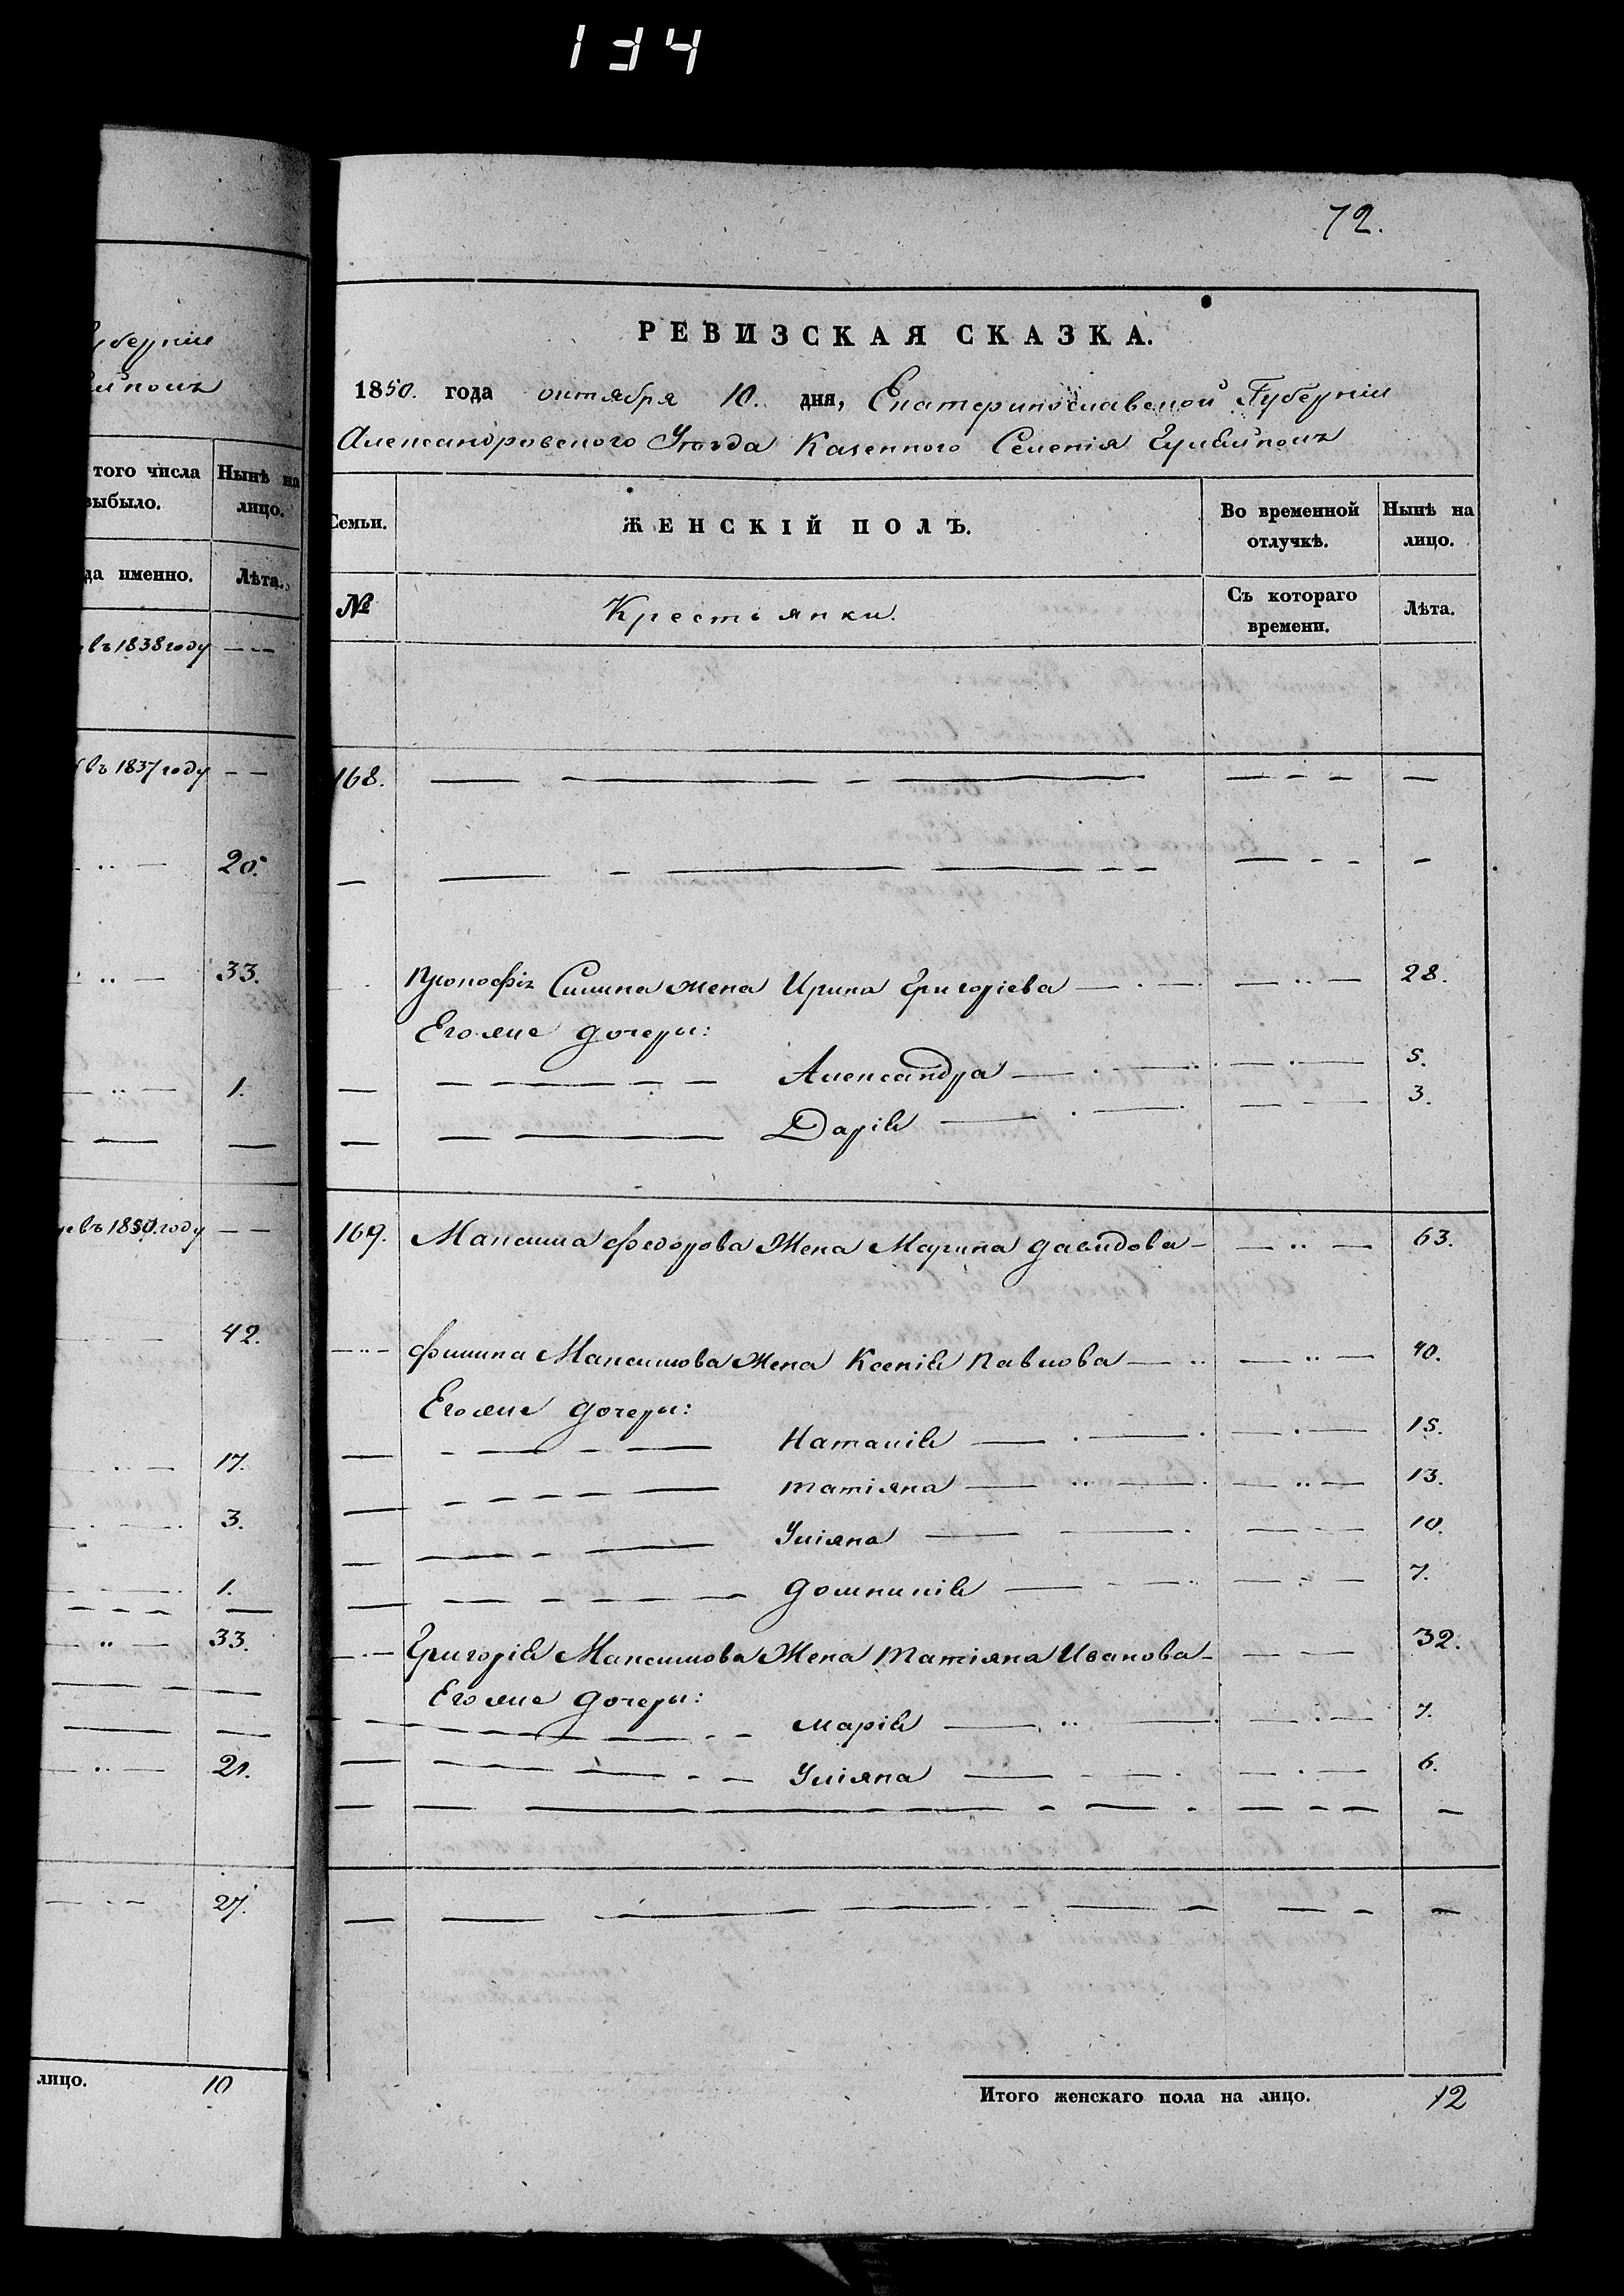 134
72.
губерніи
того числа
выбыло.
Нынѣ на
лицо.
да именно.
Лѣта.
въ 1838 году
въ 1837 году
20.
33.
1.
въ 1850. году
42.
17.
3.
1.
33.
21.
27.
лицо. 10
РЕВИЗСКАЯ СКАЗКА.
1850. года октября 10. дня, Екатеринославской Губерніи
Александровского Уѣзда Казенного Селенія Гуляйполъ
Семьи.
ЖЕНСКІЙ ПОЛЪ.
Во временной
отлучкѣ.
Нынѣ на
лицо.
№
Крестьянки.
Съ котораго
времени.
Лѣта.
168.
Прокофія Силина жена Ирина Григоріева 28.
Его же дочери:
Александра 5.
Дарія 3.
169. Максима Федорова Жена Марина Давидова 63.
Филипа Максимова Жена Ксенія Павлова 40.
Его же дочери:
Наталія 15.
Татіяна 13.
Уліяна 10.
Домникія 7.
Григорія Максимова Жена Татіяна Иванова 32.
Его же дочери:
Марія 7.
Уліяна 6.
Итого женскаго пола на лицо. 12